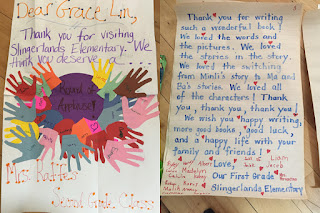 Dear Grace Lin,
Thank you for visiting
Slingerlands Elementary. We
think you deserve a...
Round of
Applause!
Mrs.
Second Grade Class
Thank you for writing
such a wonderful book!
We loved the words and
the pictures. We loved
the stories in the story.
We loved the switching
from Minli's story to Ma and
Ba's stories. We loved all
of the characters! Thank
you, thank you, thank you!
We wish you happy writing,
more good books, good luck,
and a happy life with your
family and friends!
Love,
Our First Grade
Slingerlands Elementary
Madelyn
Liam